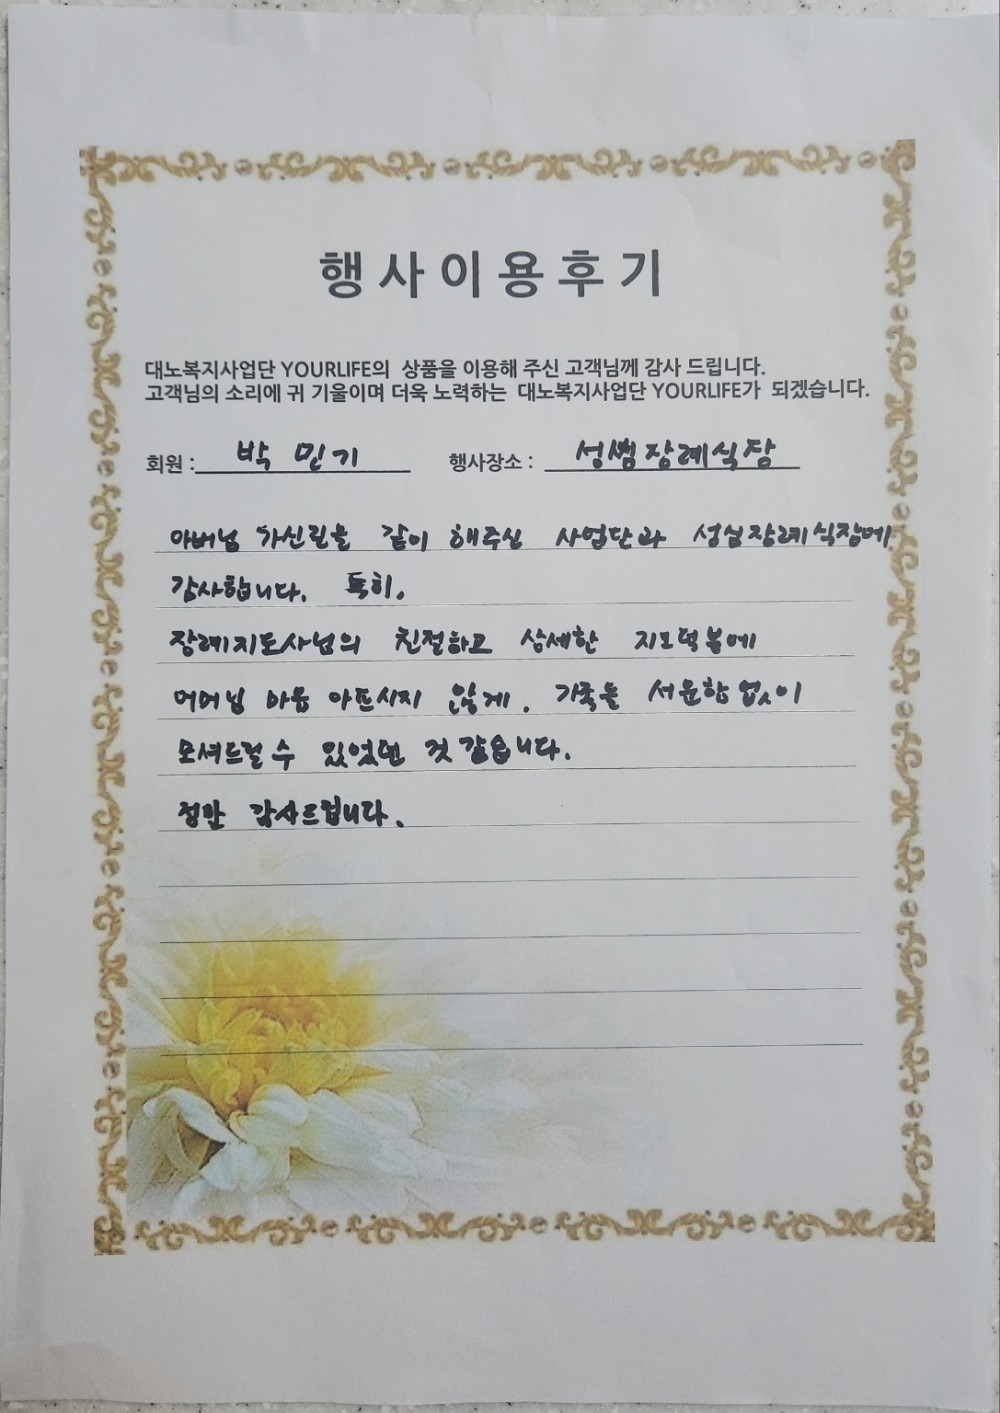 행사이용후기
대노복지사업단 YOURLIFE의 상품을 이용해 주신 고객님께 감사 드립니다.
고객님의 소리에 귀 기울이며 더욱 노력하는 대노복지사업단 YOURLIFE가 되겠습니다.
회원 : 박 민기 행사장소 : 장례식장
아버님 가신길을 같이 해주신 사업단과 성심장례식장에
감사합니다. 특히,
장례지도사님의 친절하고 상세한 지도덕분에
어머님 마음 아프시지 않게. 가족들 서운함 없이
모셔드릴 수 있었던 것 같습니다.
정말 감사드립니다.